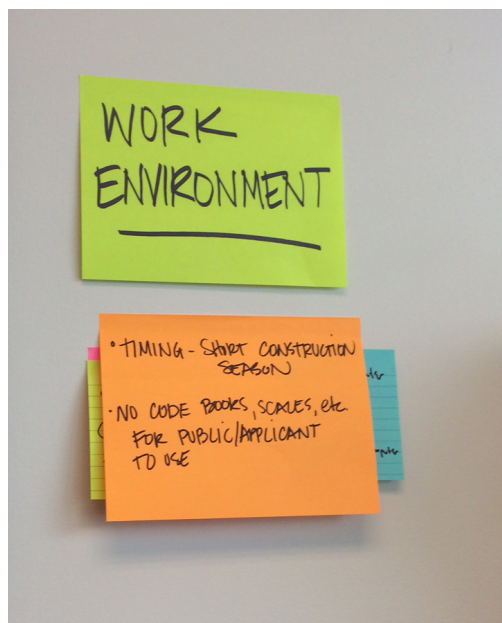 WORK
ENVIRONMENT
• TIMING - SHORT CONSTRUCTION
SEASON
• NO CODE BOOKS, SCALES, etc.
FOR PUBLIC/APPLICANT
TO USE